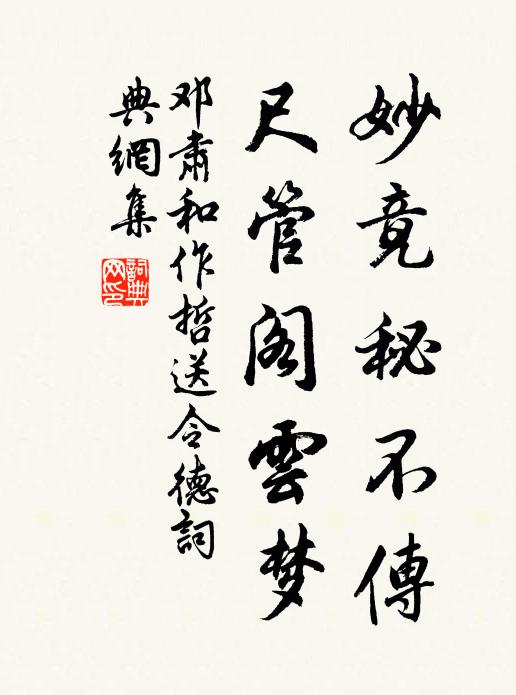 妙竟秘不傳
尺管阁雲梦
邓肅和作哲送令德詞
典網集
詞典
网印